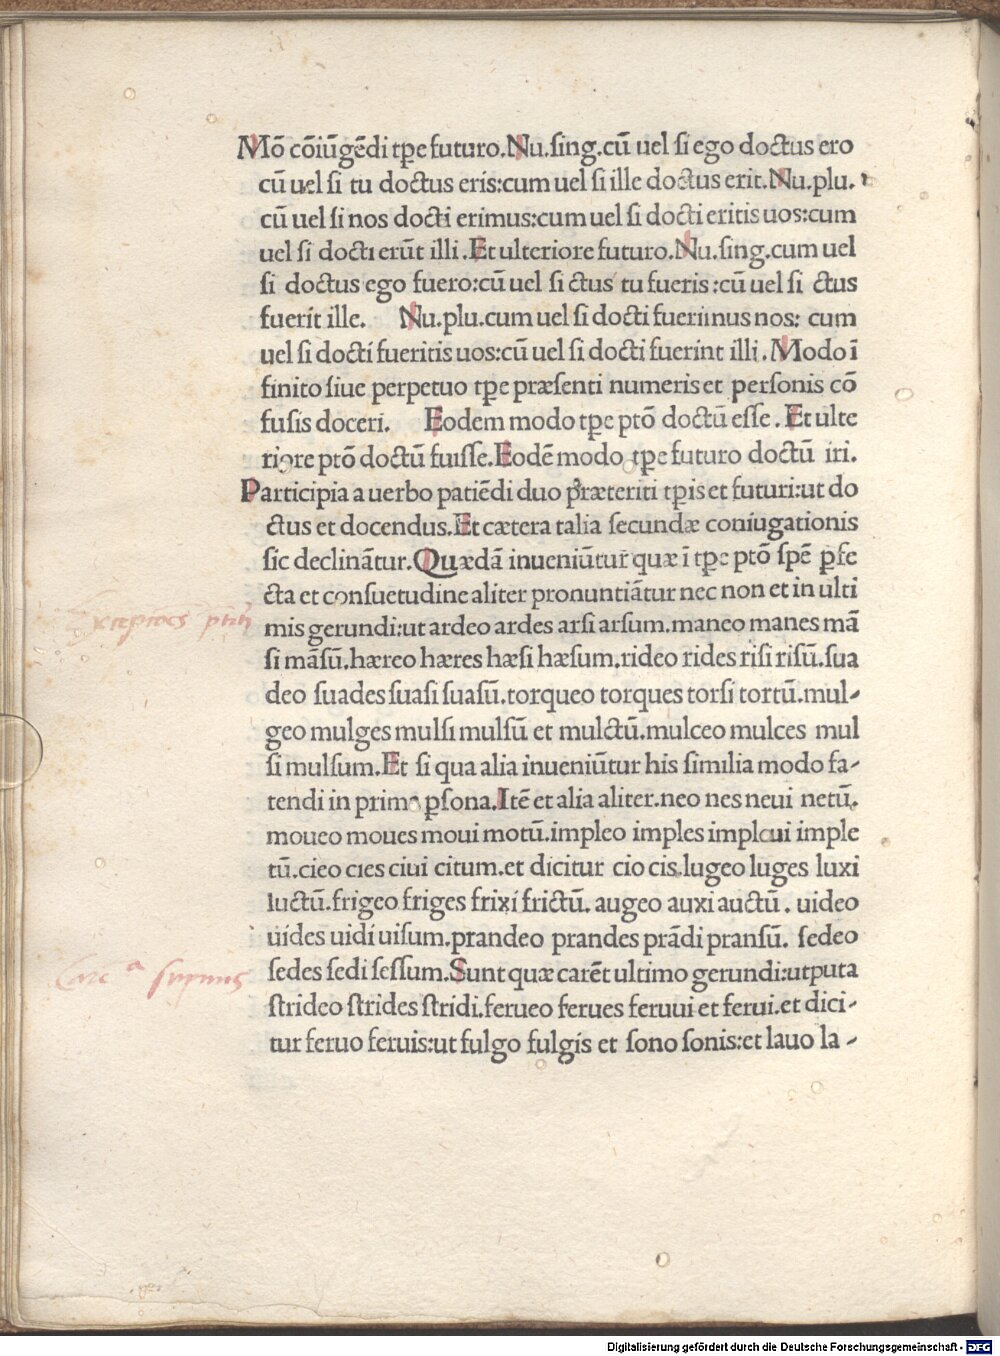 Mō cōiūgēdi tꝑe futuro.Nu.sing.cū uel si ego doctus ero
cū uel si tu doctus eris:cum uel si ille doctus erit.Nu.plu.
cū uel si nos docti erimus:cum uel si docti eritis uos:cum
uel si docti erūt illi.Et ulteriore futuro.Nu.sing.cum uel
si doctus ego fuero:cū uel si ctus tu fueris:cū uel si ctus
fuerit ille. Nu.plu.cum uel si docti fuerimus nos: cum
uel si docti fueritis uos:cū uel si docti fuerint illi.Modo ī
finito siue perpetuo tꝑe præsenti numeris et personis cō
fusis doceri. Eodem modo tꝑe ptō doctū esse. Et ulte
riore ptō doctū fuisse.Eodē modo tꝑe futuro doctū iri.
Participia a uerbo patiēdi duo præteriti tꝑis et futuri:ut do
ctus et docendus.Et cætera talia secundæ coniugationis
sic declināтur.Quædā inueniūtur quæ ī tꝑe ptō spē ꝑfe
cta et consuetudine aliter pronuntiātur nec non et in ulti
mis gerundi:ut ardeo ardes arsi arsum.maneo manes mā
si māsū.hæreo hæres hæsi hæsum.rideo rides risi risū.sua
deo suades suasi suasū.torqueo torques torsi tortū.mul-
geo mulges mulsi mulsū et mulctū.mulceo mulces mul
si mulsum.Et si qua alia inueniūtur his similia modo fa-
tendi in prima ꝑsona.Itē et alia aliter.neo nes neui netū.
moueo moues moui motū.impleo imples impleui imple
tū.cieo cies ciui citum.et dicitur cio cis.lugeo luges luxi
luctū.frigeo friges frixi frictū. augeo auxi auctū. uideo
uides uidi uisum.prandeo prandes prādi pransū. sedeo
sedes sedi sessum.Sunt quæ carēt ultimo gerundi:utputa
strideo strides stridi.ferueo ferues feruui et ferui.et dici-
tur feruo feruis:ut fulgo fulgis et sono sonis:et lauo la-
Digitalisierung gefördert durch die Deutsche Forschungsgemeinschaft - DFG